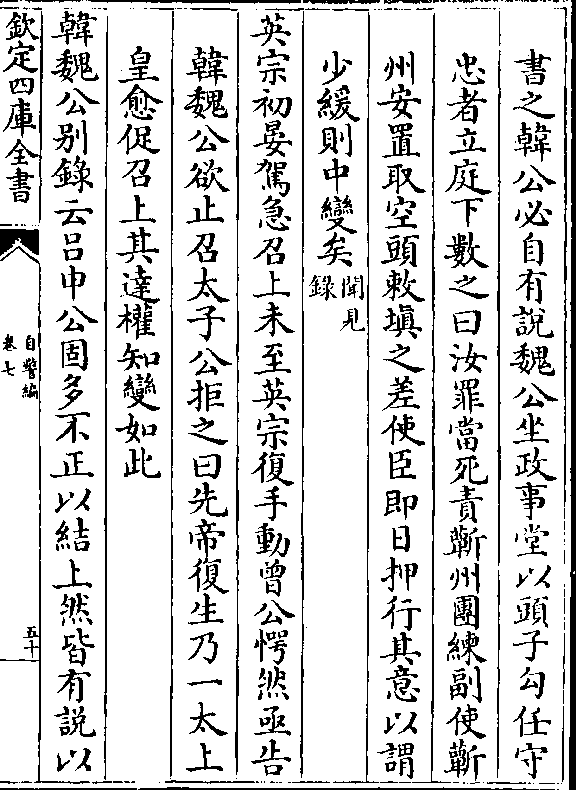 書之韓公必自有說魏公坐政事堂以頭子勾任守
忠者立庭下數之曰汝罪當死責蘄州團練副使蘄
州安置取空頭敕塡之差使臣即日押行其意以謂
少緩則中變矣聞見錄
英宗初晏駕急召上未至英宗復手動曾公愕然亟告
韓魏公欲止召太子公拒之曰先帝復生乃一太上
皇愈促召上其達權知變如此
韓魏公別錄云呂申公固多不正以結上然皆有說以
欽定四庫全書
自警編
卷七
五十